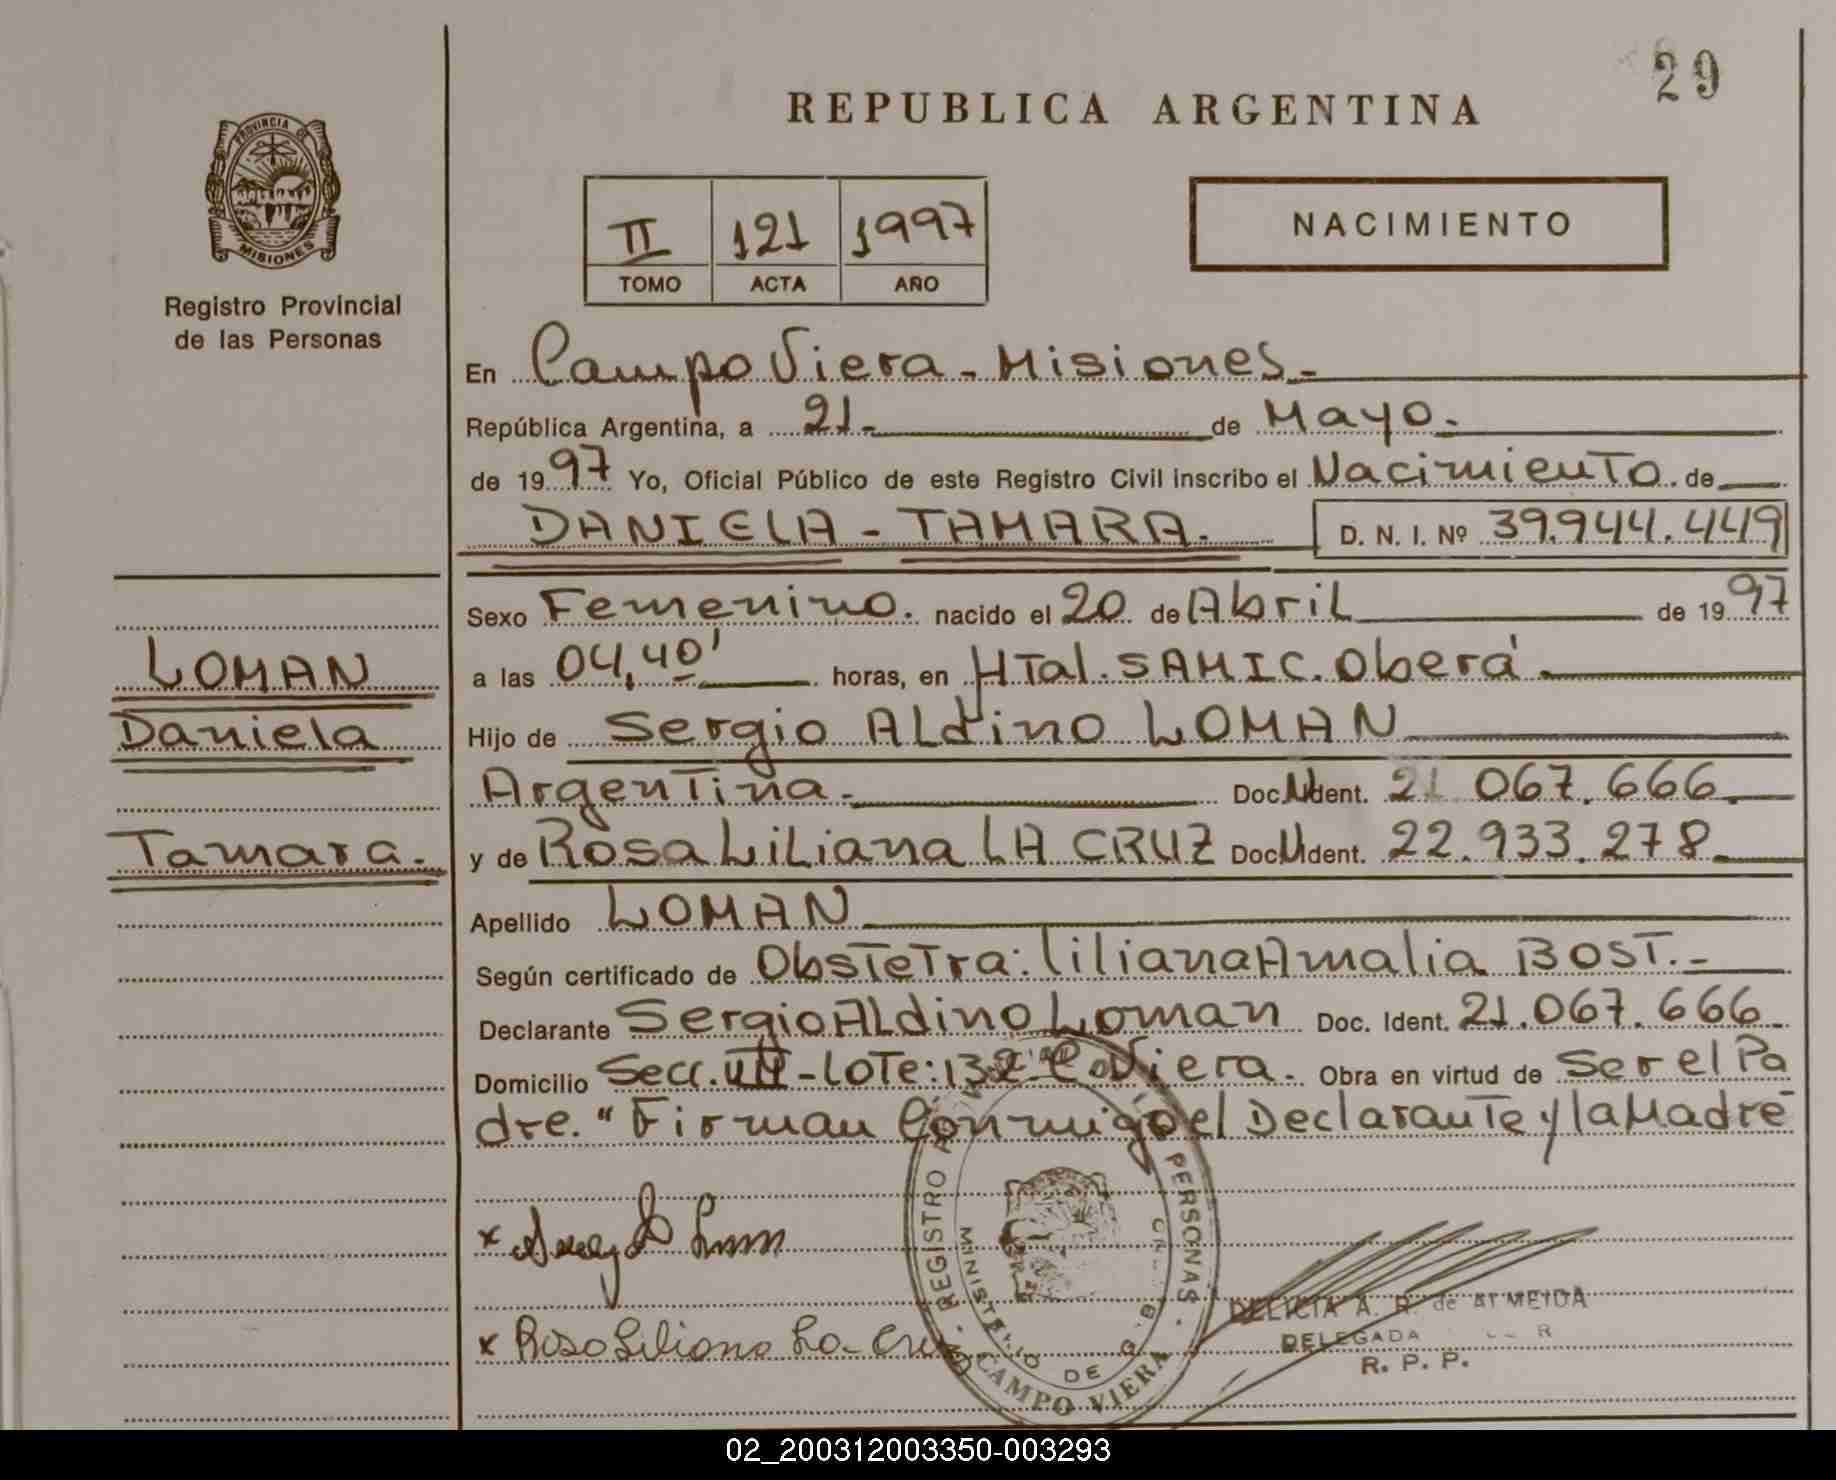 29
REPUBLICA ARGENTINA
PROVINCIA DE
MISIONES
Registro Provincial
de las Personas
II 121 1997
TOMO ACTA AÑO
NACIMIENTO
En Campo Viera - Misiones -
República Argentina, a 21 - de Mayo.
de 1997 Yo, Oficial Público de este Registro Civil inscribo el Nacimiento de
DANIELA - TAMARA. D. N. I. Nº 39.944.449
Sexo Femenino. nacido el 20 de Abril de 1997
LOMAN
a las 04,40' horas, en HTal. SAMIC. Oberá.
Daniela
Hijo de Sergio Aldino LOMAN
Argentina. Doc. N. Ident. 21 067.666.
Tamara.
y de Rosa Liliana LA CRUZ Doc. N. Ident. 22.933.278.
Apellido LOMAN
Según certificado de Obstetra: Liliana Amalia BOST. -
Declarante Sergio Aldino Loman Doc. Ident. 21.067.666.
Domicilio Secc. VII - Lote: 132 C. Viera. Obra en virtud de Ser el Pa
dre. " Firman Conmigo el Declarante y la Madre
x
x Rosa Liliana La Cruz
REGISTRO PERSONAS
MINISTERIO DE GOB.
CAMPO VIERA
DELICIA A. R. de ALMEIDA
DELEGADA
R. P. P.
02_200312003350-003293